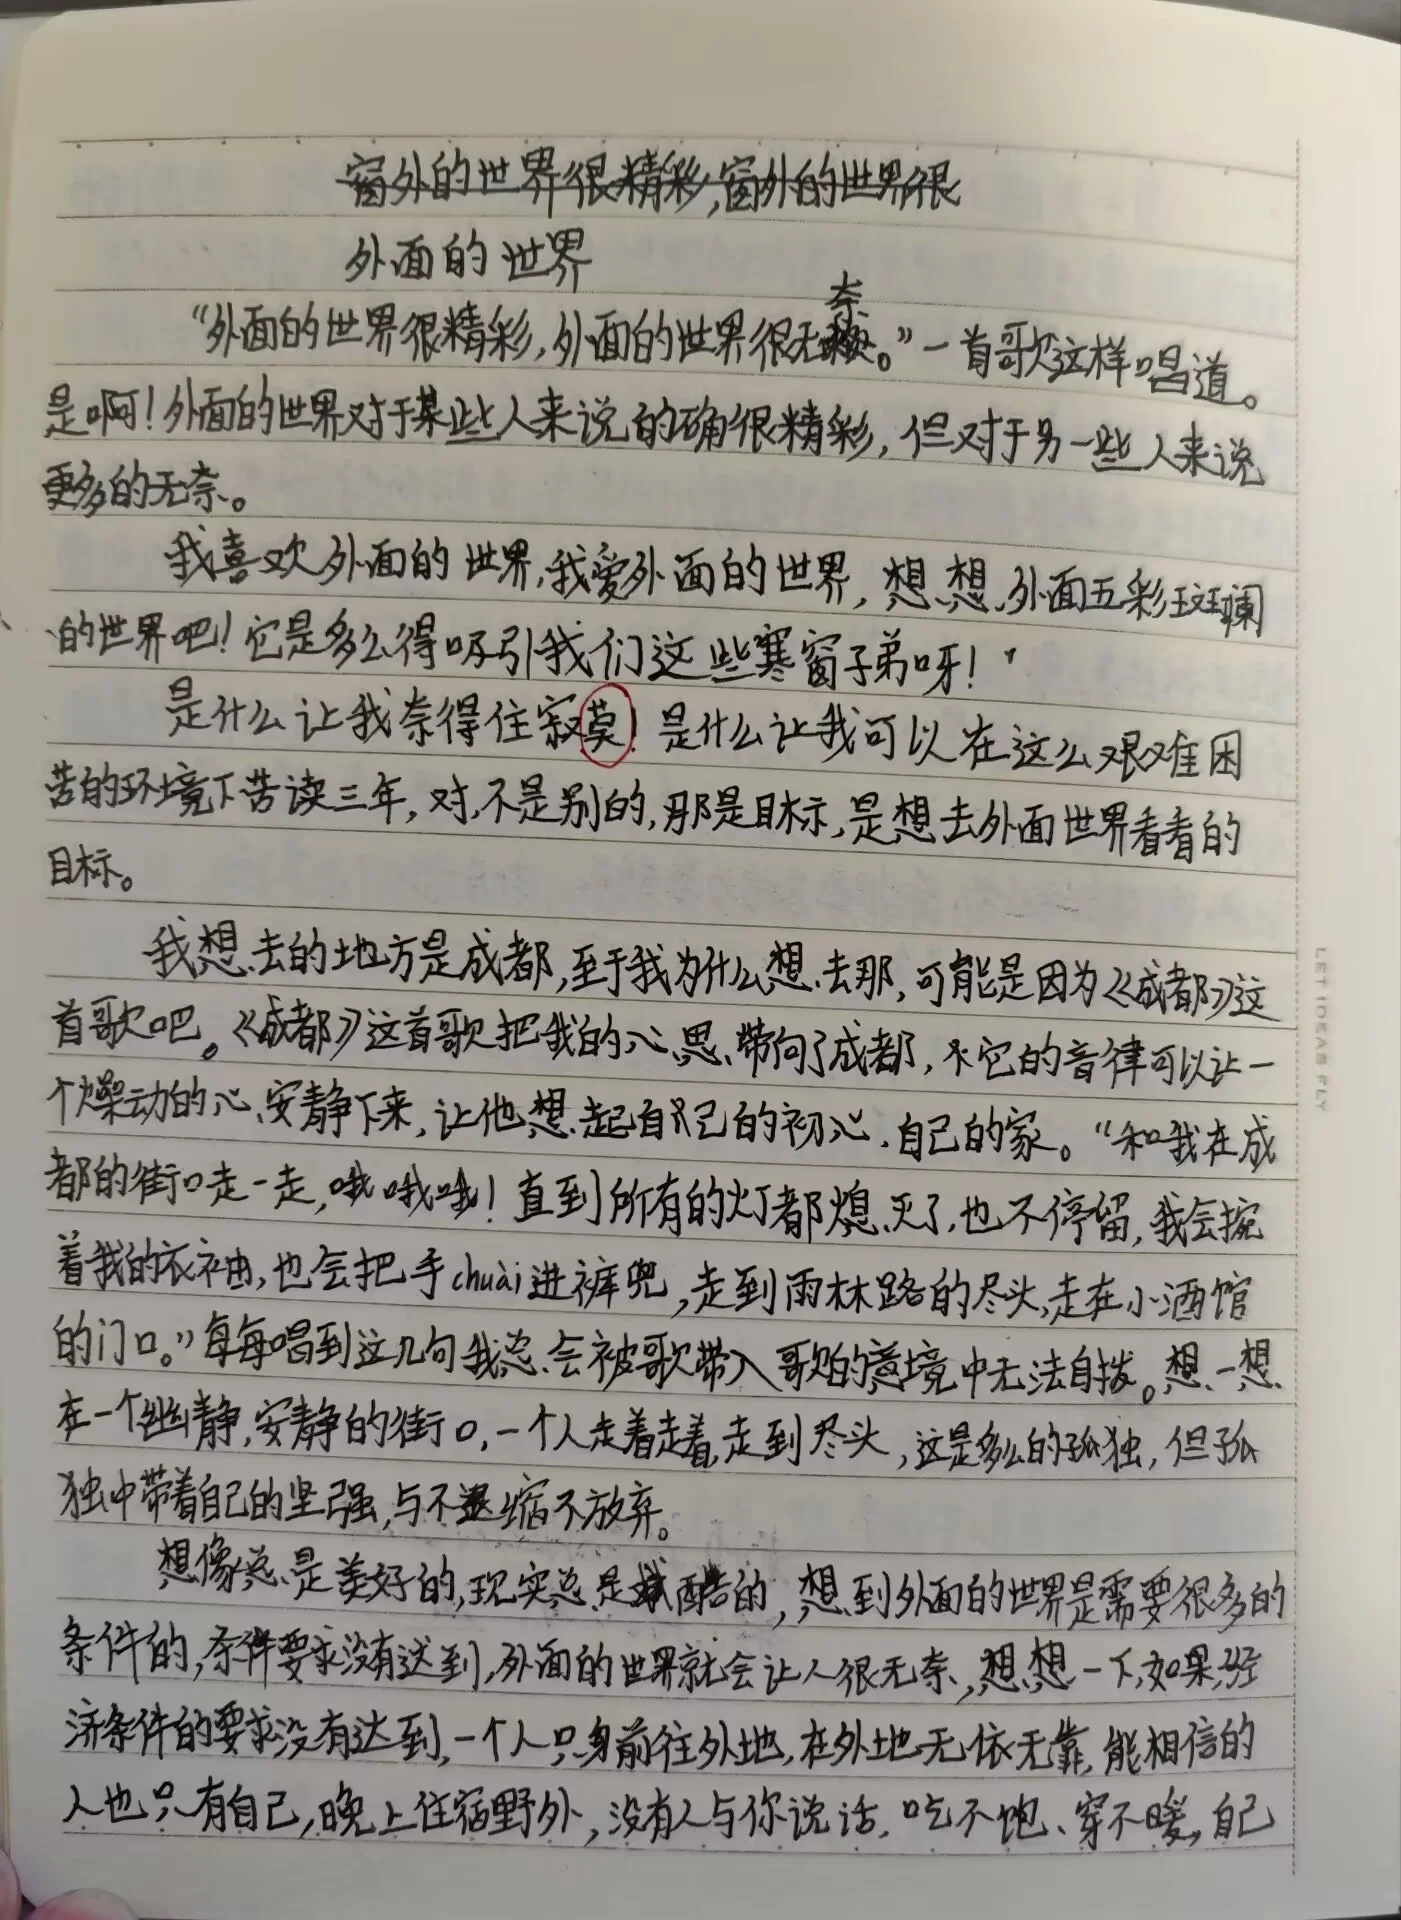 窗外的世界很精彩,窗外的世界很
外面的世界
奈
“外面的世界很精彩,外面的世界很无。”一首歌这样唱道。
是啊!外面的世界对于某些人来说的确很精彩,但对于另一些人来说
更多的无奈。
我喜欢外面的世界,我爱外面的世界,想想外面五彩斑斓
的世界吧!它是多么得吸引我们这些寒窗子弟呀!
是什么让我奈得住寂莫!是什么让我可以在这么艰难困
苦的环境下苦读三年,对,不是别的,那是目标,是想去外面世界看看的
目标。
我想去的地方是成都,至于我为什么想去那,可能是因为《成都》这
首歌吧。《成都》这首歌把我的心思带向了成都,它的音律可以让一
个燥动的心安静下来,让他想起自己的初心,自己的家。“和我在成
都的街口走一走,哦哦哦!直到所有的灯都熄灭了,也不停留,我会挽
着我的衣袖,也会把手chuài进裤兜,走到雨林路的尽头,走在小酒馆
的门口。”每每唱到这几句我总会被歌带入歌的意境中无法自拨。想一想
在一个幽静,安静的街口,一个人走着走着,走到尽头,这是多么的孤独,但孤
独中带着自己的坚强,与不退缩不放弃。
想像总是美好的,现实总是酷的,想到外面的世界是需要很多的
条件的,条件要求没有达到,外面的世界就会让人很无奈,想想一下,如果,经
济条件的要求没有达到,一个人只身前往外地,在外地无依无靠,能相信的
人也只有自己,晚上住宿野外,没有人与你说话,吃不饱、穿不暖,自己
LET IDEAS FLY